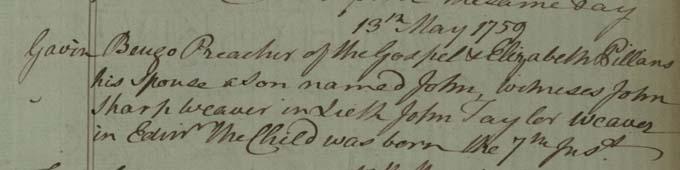 the same day
13th May 1759
Gavin Beugo Preacher of the Gospel & Elizabeth Pillans
his spouse a son named John, witneses John
Sharp weaver in Leith John Taylor weaver
in Edinr The Child was born the 7th Inst.